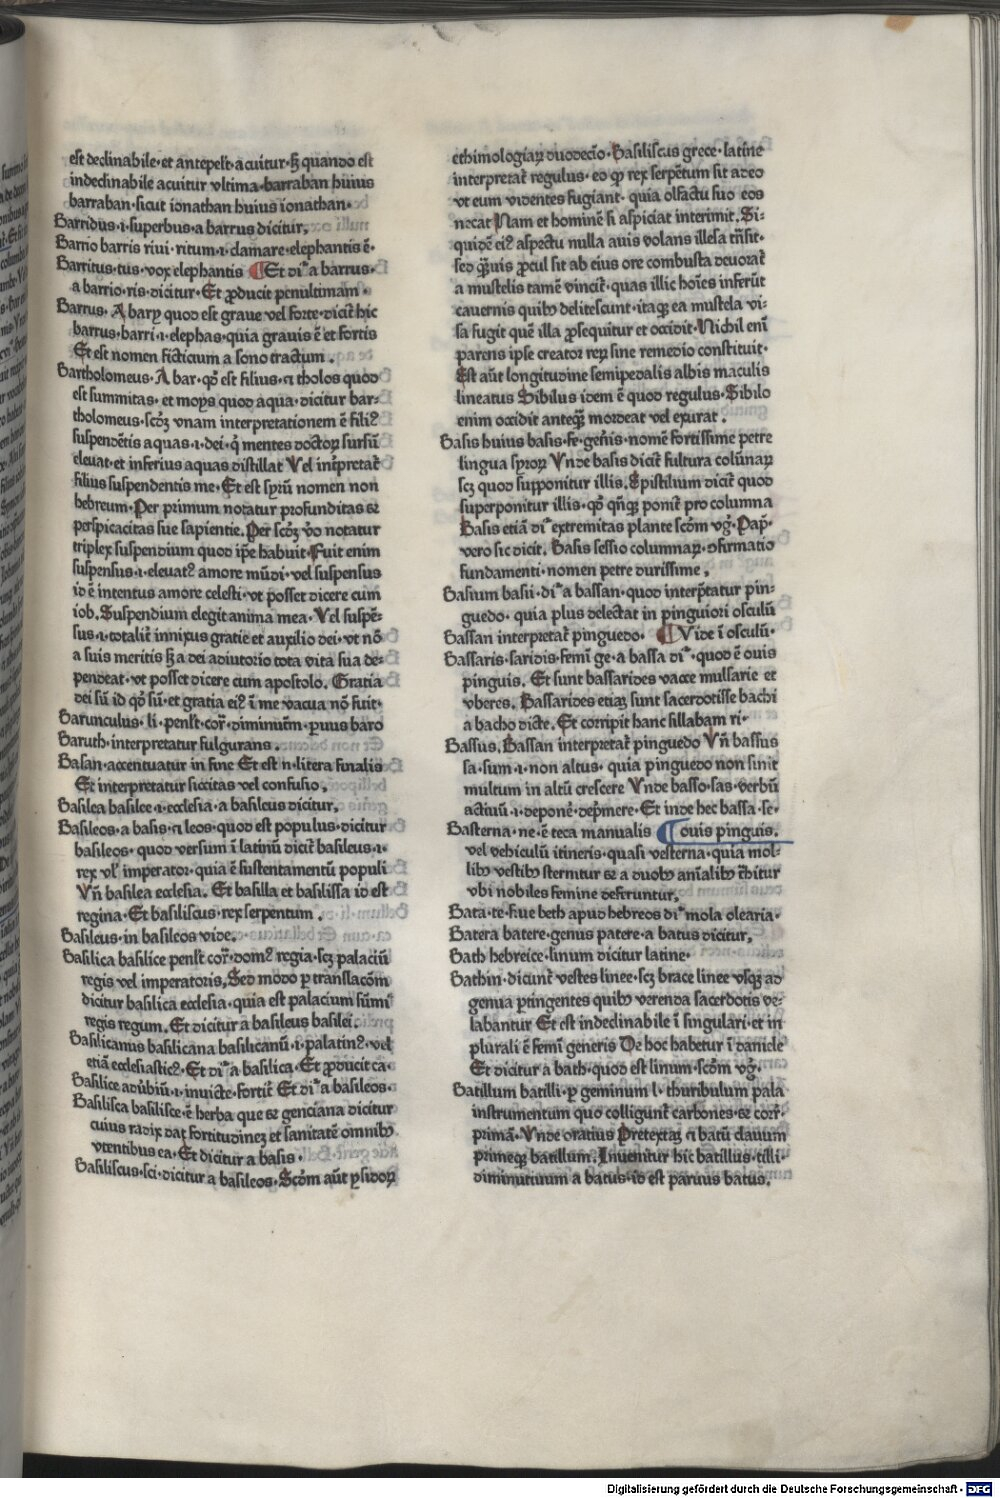 est declinabile·et antepełt·acuitur·sꝫ quando est
indeclinabile acuitur vltima·barraban huius
barraban·sicut ionathan huius ionathan·
Barridus·i·superbus·a barrus dicitur,
Barrio barris riui·ritum·i·clamare·elephantis ē·
Barritus·tus·vox elephantis ¶Et di᷑ a barrus·
a barrio·ris·dicitur·Et ꝓducit penultimam·
Barrus·A barẏ quod est graue vel forte·dicit̄ hic
barrus·barri·i·elephas·quia grauis ē et fortis
Et est nomen ficticium a sono tractum.
Bartholomeus·A bar·qd̄ est filius·⁊ tholos quod
est summitas·et moys quod aqua·dicitur bar-
tholomeus·scd̄ꝫ vnam interpretationem ē filiꝰ
suspendētis aquas·i·dei·q̇ mentes doctoꝝ sursū
eleuat·et inferius aquas distillat Vel int̄pretat̄
filius suspendentis me·Et est syrū nomen non
hebreum·Per primum notatur profunditas ⁊
perspicacitas sue sapientie.Per scd̄ꝫ vo notatur
triplex suspendium quod ip̄e habuit·Fuit enim
suspensus·i·eleuatꝰ amore mūdi·vel suspensus
id ē intentus amore celesti·vt posset dicere cum
iob.Suspendium elegit anima mea·Vel suspē-
sus·i·totalit̄ innixus gratie et auxilio dei·vt nō
a suis meritis sꝫ a dei adiutorio tota vita sua de-
pendeat·vt posset dicere cum apostolo.Gratia
dei sū id qd̄ sū·et gratia eiꝰ ī me vacua nō fuit·
Barunculus·li·penłt·cor̄·diminutm̄·ꝑuus baro
Baruth·interpretatur fulgurans.
Basan·accentuatur in fine Et est n·litera finalis
Et interpretatur siccitas vel confusio.
Basilea basilee·i·ecclesia·a basileus dicitur,
Basileos·a basis·⁊ leos·quod est populus·dicitur
basileos·quod versum ī latinū dicit̄ basileus·i·
rex vł imperator·quia ē sustentamentū populi
Vn̄ basilea ecclesia. Et basilla et basilissa id est
regina·Et basiliscus·rex serpentum.
Basileus·in basileos vide.
Basilica basilice penłt cor̄·domꝰ regia·scꝫ palaciū
regis vel imperatoris,Sed modo ꝑ translacōm
dicitur basilica ecclesia·quia est palacium sūmi
regis regum. Et dicitur a basileus basilei.
Basilicanus basilicana basilicanū·i·palatinꝰ vel
etiā ecclesiasticꝰ·Et di᷑ a basilica·Et ꝓducit ca·
Basilice adūbiū·i·inuicte·fortit̄ Et di᷑ a basileos·
Basilisca basilisce·ē herba que ⁊ genciana dicitur
cuius radix dat̄ fortitudineꝫ et sanitatē omnibꝰ
vtentibus ea·Et dicitur a basis·
Basiliscus·sci·dicitur a basileos·Scd̄m aūt ysidoꝝ
ethimologiaꝝ duodecīo·Basiliscus grece·latine
interpretat̄ regulus·eo ꝙ rex serpētum sit adeo
vt eum videntes fugiant·quia olfactu suo eos
necat Nam et hominē si aspiciat interimit.Si-
quidē eiꝰ aspectu nulla auis volans illesa trāsit·
sed qͣ̄uis ꝓcul sit ab eius ore combusta deuorat̄
a mustelis tamē vincit̄·quas illic hoīes inferūt
cauernis quibꝰ delitescunt·itaqꝫ ea mustela vi-
sa fugit quē illa ꝓsequitur et occidit·Nichil enī
parens ipse creator reꝝ sine remedio constituit·
Est aūt longitudine semipedalis albis maculis
lineatus Sibilus idem ē quod regulus·Sibilo
enim occidit anteqͣ̄ꝫ mordeat vel exurat.
Basis huius basis·fe·gen̄is·nomē fortissime petre
lingua syroꝝ Vnde basis dicit̄ fultura colūnaꝝ
scꝫ quod supponitur illis.Epistilium dicit̄ quod
superponitur illis·qd̄ qn̄qꝫ ponit̄ pro columna
Basis etiā di᷑ extremitas plante scd̄m vg̊·Pap̄·
vero sic dicit. Basis sessio columnaꝝ·ↄfirmatio
fundamenti·nomen petre durissime,
Basium basii·di᷑ a bassan·quod interp̄tatur pin-
guedo·quia plus delectat in pinguiori osculū
Bassan interpretat̄ pinguedo· ¶Vide ī osculū·
Bassaris·saridis·femī ge·a bassa di᷑·quod ē ouis
pinguis. Et sunt bassarides vacce mulsarie et
vberes. Bassarides etiaꝫ sunt sacerdotisse bachi
a bacho dicte.Et corripit hanc sillabam ri·
Bassus.Bassan interpretat̄ pinguedo Vn̄ bassus
sa·sum·i·non altus·quia pinguedo non sinit
multum in altū crescere Vnde basso·sas·verbū
actiuū·i·deponē·dep̄mere·Et inde hec bassa·se·
Basterna·ne·ē teca manualis ¶ouis pinguis.
vel vehiculū itineris·quasi vesterna·quia mol-
libꝰ vestibꝰ sternitur ⁊ a duobꝰ anīalibꝰ tͣhitur
vbi nobiles femine deferuntur,
Bata·te·siue beth apud hebreos di᷑ mola olearia·
Batera batere·genus patere·a batus dicitur,
Bath hebreice·linum dicitur latine·
Bathin·dicunt̄ vestes linee·scꝫ brace linee vsqꝫ ad
genua ꝑtingentes quibꝰ verenda sacerdotis ve-
labantur Et est indeclinabile ī singulari·et in
plurali ē femī generis De hoc habetur ī daniele
Et dicitur a bath·quod est linum·scd̄m vg̊.
Batillum batilli·ꝑ geminum l·thuribulum pala
instrumentum quo colligunt̄ carbones·⁊ corr̄·
primā·Vnde oratius Pretextaꝫ ⁊ batū clauum
primeqꝫ batillum.Inuenitur hic batillus·tilli·
diminutiuum a batus·id est paruus batus.
Digitalisierung gefördert durch die Deutsche Forschungsgemeinschaft - DFG